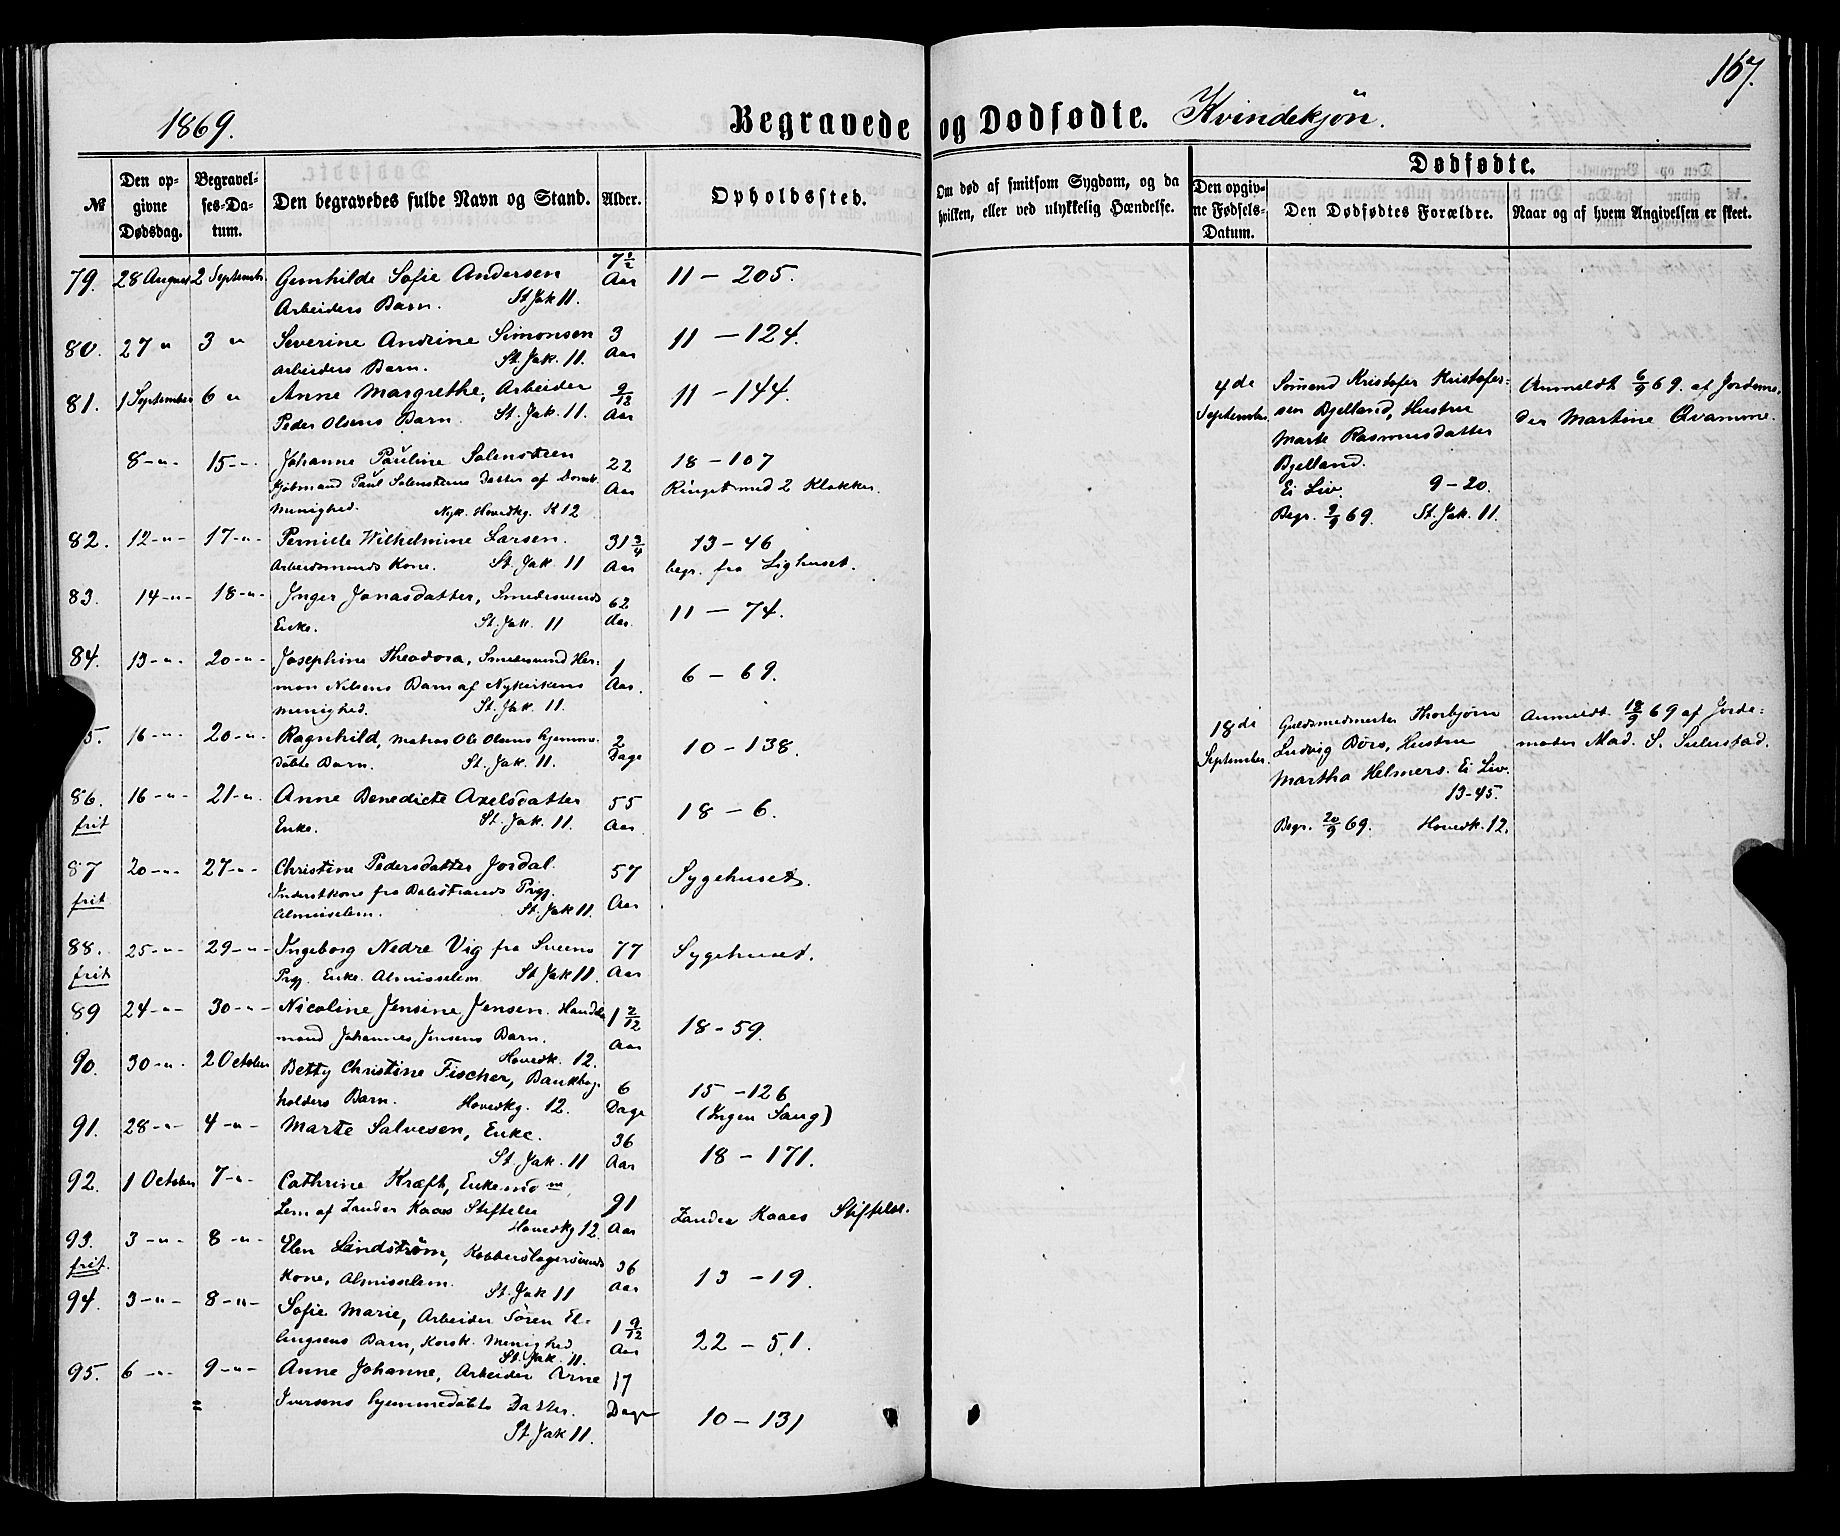 167.
1869.
Begravede og Dødfødte. Kvindekjøn.
№
Den opgivne Dødsdag.
Begravelses-Datum.
Den begravedes fulde Navn og Stand.
Alder.
Opholdssted.
Om død af smitsom Sygdom, og da hvilken, eller ved ulykkelig Hændelse.
Dødfødte.
Den opgivne Fødsels-Datum.
Den Dødfødtes Forældre.
Naar og af hvem Angivelsen er skeet.
79. 28 August 2 Septembr. Gunhilde Sofie Andersen 7 1/2 Aar 11 - 205.
Arbeiders Barn. St. Jak 11.
80. 27 " 3 " Severine Andrine Simonsen 3 Aar 11 - 124.
Arbeiders Barn. St. Jak. 11.
81. 1 September 6 " Anne Margrethe, Arbeider Aar 11 - 144.
Peder Olsens Barn. St. Jak. 11.
8 - " - 15 - " - Johanne Pauline Salensteen 22 Aar 18 - 107
Kjøbmand Paul Salenstens Datter af Domk. Ringet med 2 Klokker.
Menighed. Nyk. Hovedkg. K 12
82. 12 - " - 17 - " - Pernille Wilhelmine Larsen. 31 3/4 Aar 13 - 46
Arbeidsmands Kone. St. Jak. 11 begr. fra Lighuset.
83. 14 - " - 18 - " - Inger Jonasdatter, Smedesvends 62 Aar. 11 - 74.
Enke. St. Jak. 11
84. 13 - " - 20 - " - Josephine Theodora, Smedesvend Her- 1 Aar. 6 - 69.
man Nilsens Barn af Nykirkens
Menighed. St. Jak. 11.
5. 16 - " - 20 - " - Ragnhild, Matros Ole Olsens hjemme- 2 Dage 10 - 138.
døbte Barn. St. Jak. 11.
86. frit 16 - " - 21 - " - Anne Benedicte Axelsdatter 55 Aar 18 - 6.
Enke. St. Jak. 11.
87 frit 20 - " - 27 - " - Christine Pedersdatter Jordal 57 Aar Sygehuset.
Inderstkone fra Balestrands Prgj.
Almisselem. St. Jak 11.
88. frit 25 - " - 29 - " - Ingeborg Nedre Vig fra Sveens 77 Aar Sygehuset.
Prgj. Enke. Almisselem St. Jak 11.
89 24 - " - 30 - " - Nicoline Jensine Jensen. Handels 1 2/12 Aar 18 - 59.
mand Johannes Jensens Barn.
Hovedk. 12.
90. 30 - " - 2 October Betty Christine Fischer, Bankbog- 6 Dage 15 - 126
holders Barn. Hovedkg. 12. (Ingen Sang)
91. 28 - " - 4 - " - Marte Salvesen, Enke. 36 Aar 18 - 171.
St. Jak. 11
92. 1 October 7 - " - Cathrine Kræft, Enkemdm 91 Aar Zander Kaaes Stiftelse.
Lem af Zander Kaaes Stiftelse
Hovedkg 12.
93. frit. 3 - " - 8 - " - Elen Lindstrøm, Kobberslagersvends 36 Aar 13 - 19.
Kone, Almisselem. St. Jak 11
94. 3 - " - 8 - " - Sofie Marie, Arbeider Søren El- 1 9/12 Aar 22 - 51.
lingsens Barn, Korsk. Menighed.
St. Jak. 11.
95. 6 - " - 9 - " - Anne Johanne, Arbeider Arne 17 Dage 10 - 131
Iversens hjemmedøbte Datter.
St. Jak 11.
4de September. Sømand Kristofer Kristofer-
sen Bjelland, Hustru
Marte Rasmusdatter
Bjelland.
Ei Liv. 9 - 20.
Begr. 9/9 69. St. Jak. 11.
Anmeldt 6/9 69. af Jordemo-
der Martine Qvamme.
18de September. Guldsmedmester Thorbjørn
Ludvig Børs, Hustru
Martha Helmers. Ei Liv.
13 - 45.
Begr. 20/9 69. Hovedk. 12.
Anmeldt 18/9 69 af Jorde-
moder Mad. S.